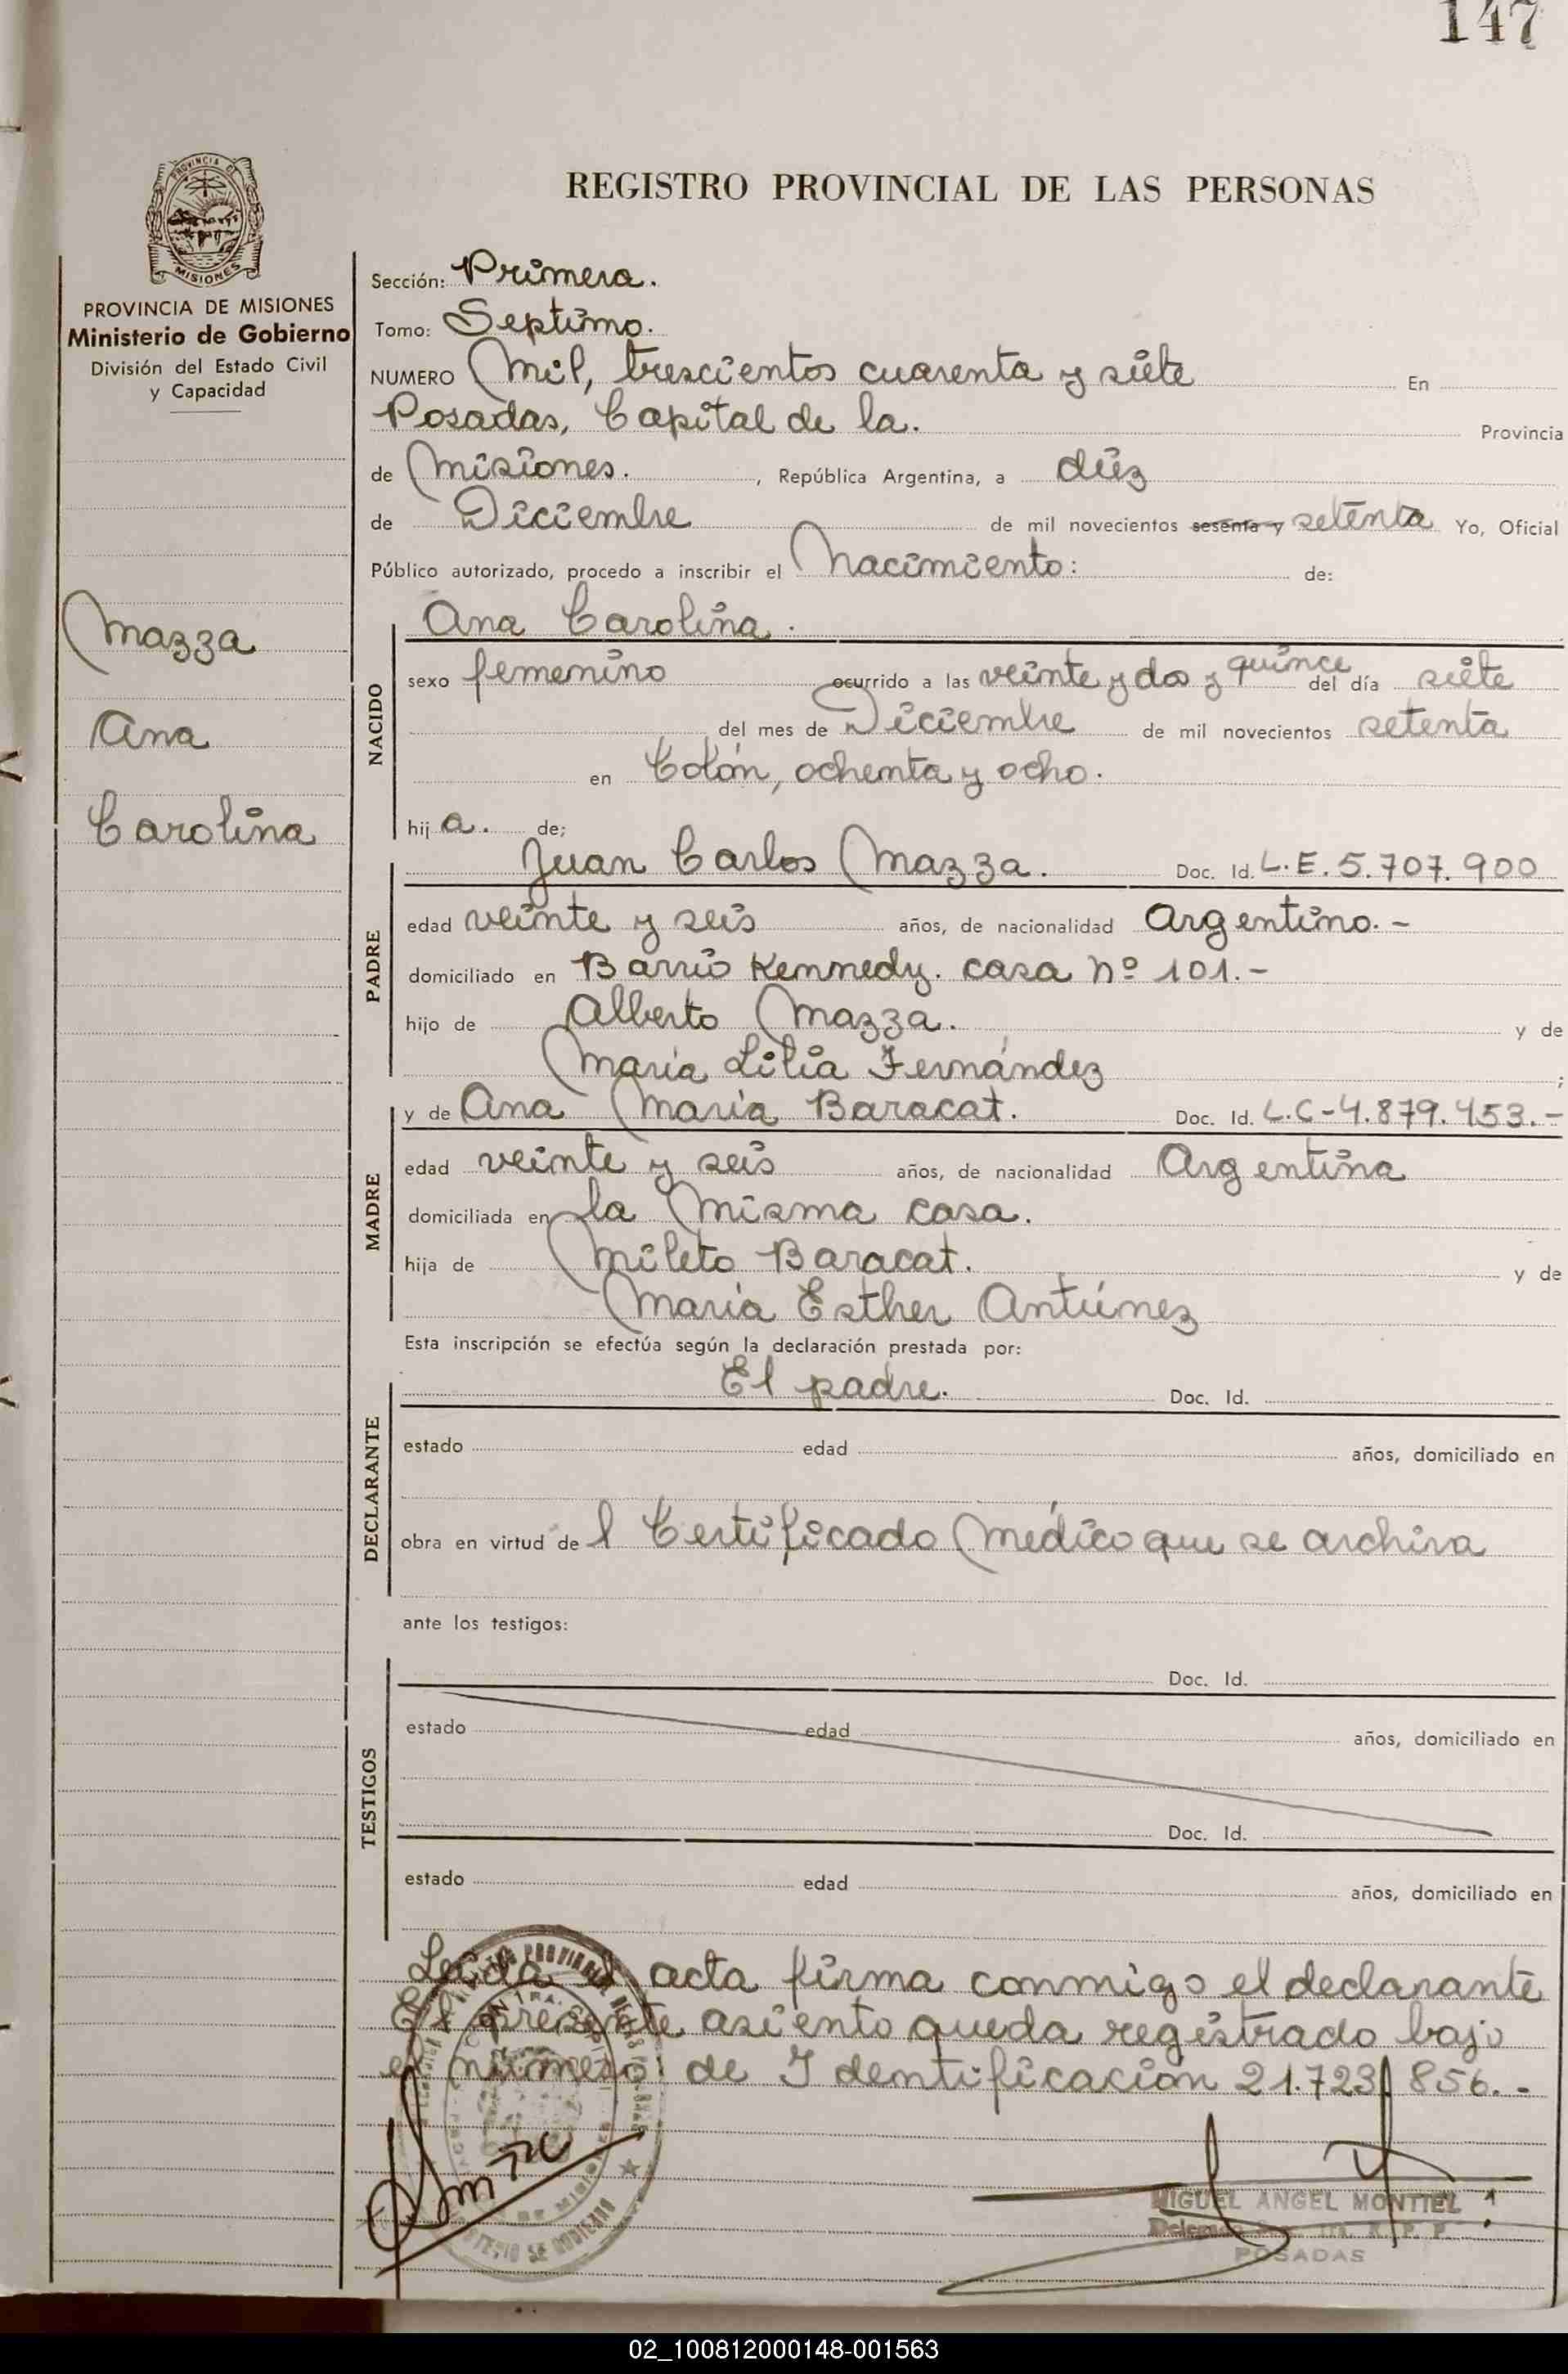 147
PROVINCIA DE
MISIONES
PROVINCIA DE MISIONES
Ministerio de Gobierno
División del Estado Civil
y Capacidad
Mazza
Ana
Carolina
REGISTRO PROVINCIAL DE LAS PERSONAS
Sección: Primera.
Tomo: Septimo.
NUMERO Mil, trescientos cuarenta y siete En
Posadas, Capital de la. Provincia
de Misiones. , República Argentina, a diez
de Diciembre de mil novecientos sesenta y setenta Yo, Oficial
Público autorizado, procedo a inscribir el Nacimiento: de:
NACIDO
Ana Carolina.
sexo femenino ocurrido a las veinte y dos y quince del día siete
del mes de Diciembre de mil novecientos setenta
en Colón, ochenta y ocho.
hij a. de;
PADRE
Juan Carlos Mazza. Doc. Id. L.E. 5.707.900
edad veinte y seis años, de nacionalidad Argentino.-
domiciliado en Barrio Kennedy. casa nº 101.-
hijo de Alberto Mazza. y de
María Lilia Fernández ;
MADRE
y de Ana María Baracat. Doc. Id. L.C-4.879.453.-
edad veinte y seis años, de nacionalidad Argentina
domiciliada en la misma casa.
hija de Mileto Baracat. y de
María Esther Antúnez
Esta inscripción se efectúa según la declaración prestada por:
DECLARANTE
El padre. Doc. Id.
estado edad años, domiciliado en
obra en virtud de l Certificado Médico que se archiva
ante los testigos:
TESTIGOS
Doc. Id.
estado edad años, domiciliado en
Doc. Id.
estado edad años, domiciliado en
Leída el acta firma conmigo el declarante
El presente asiento queda registrado bajo
el número: de Identificación 21.723.856.-
MIGUEL ANGEL MONTIEL
R. P. P.
POSADAS
02_100812000148-001563